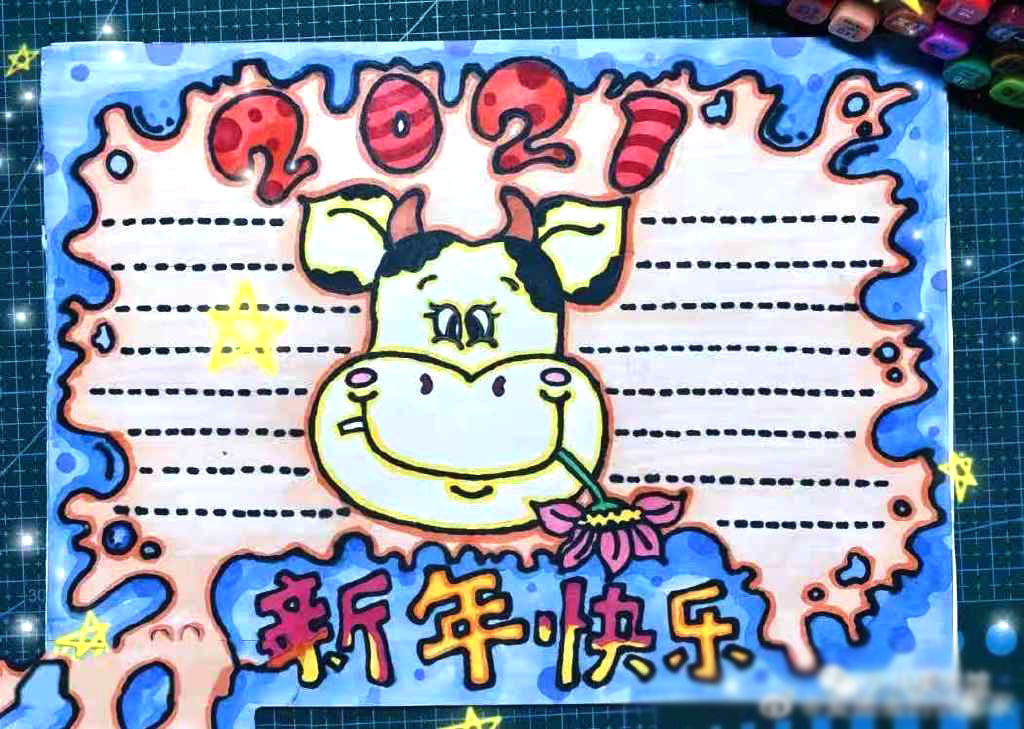 2021
新年快乐